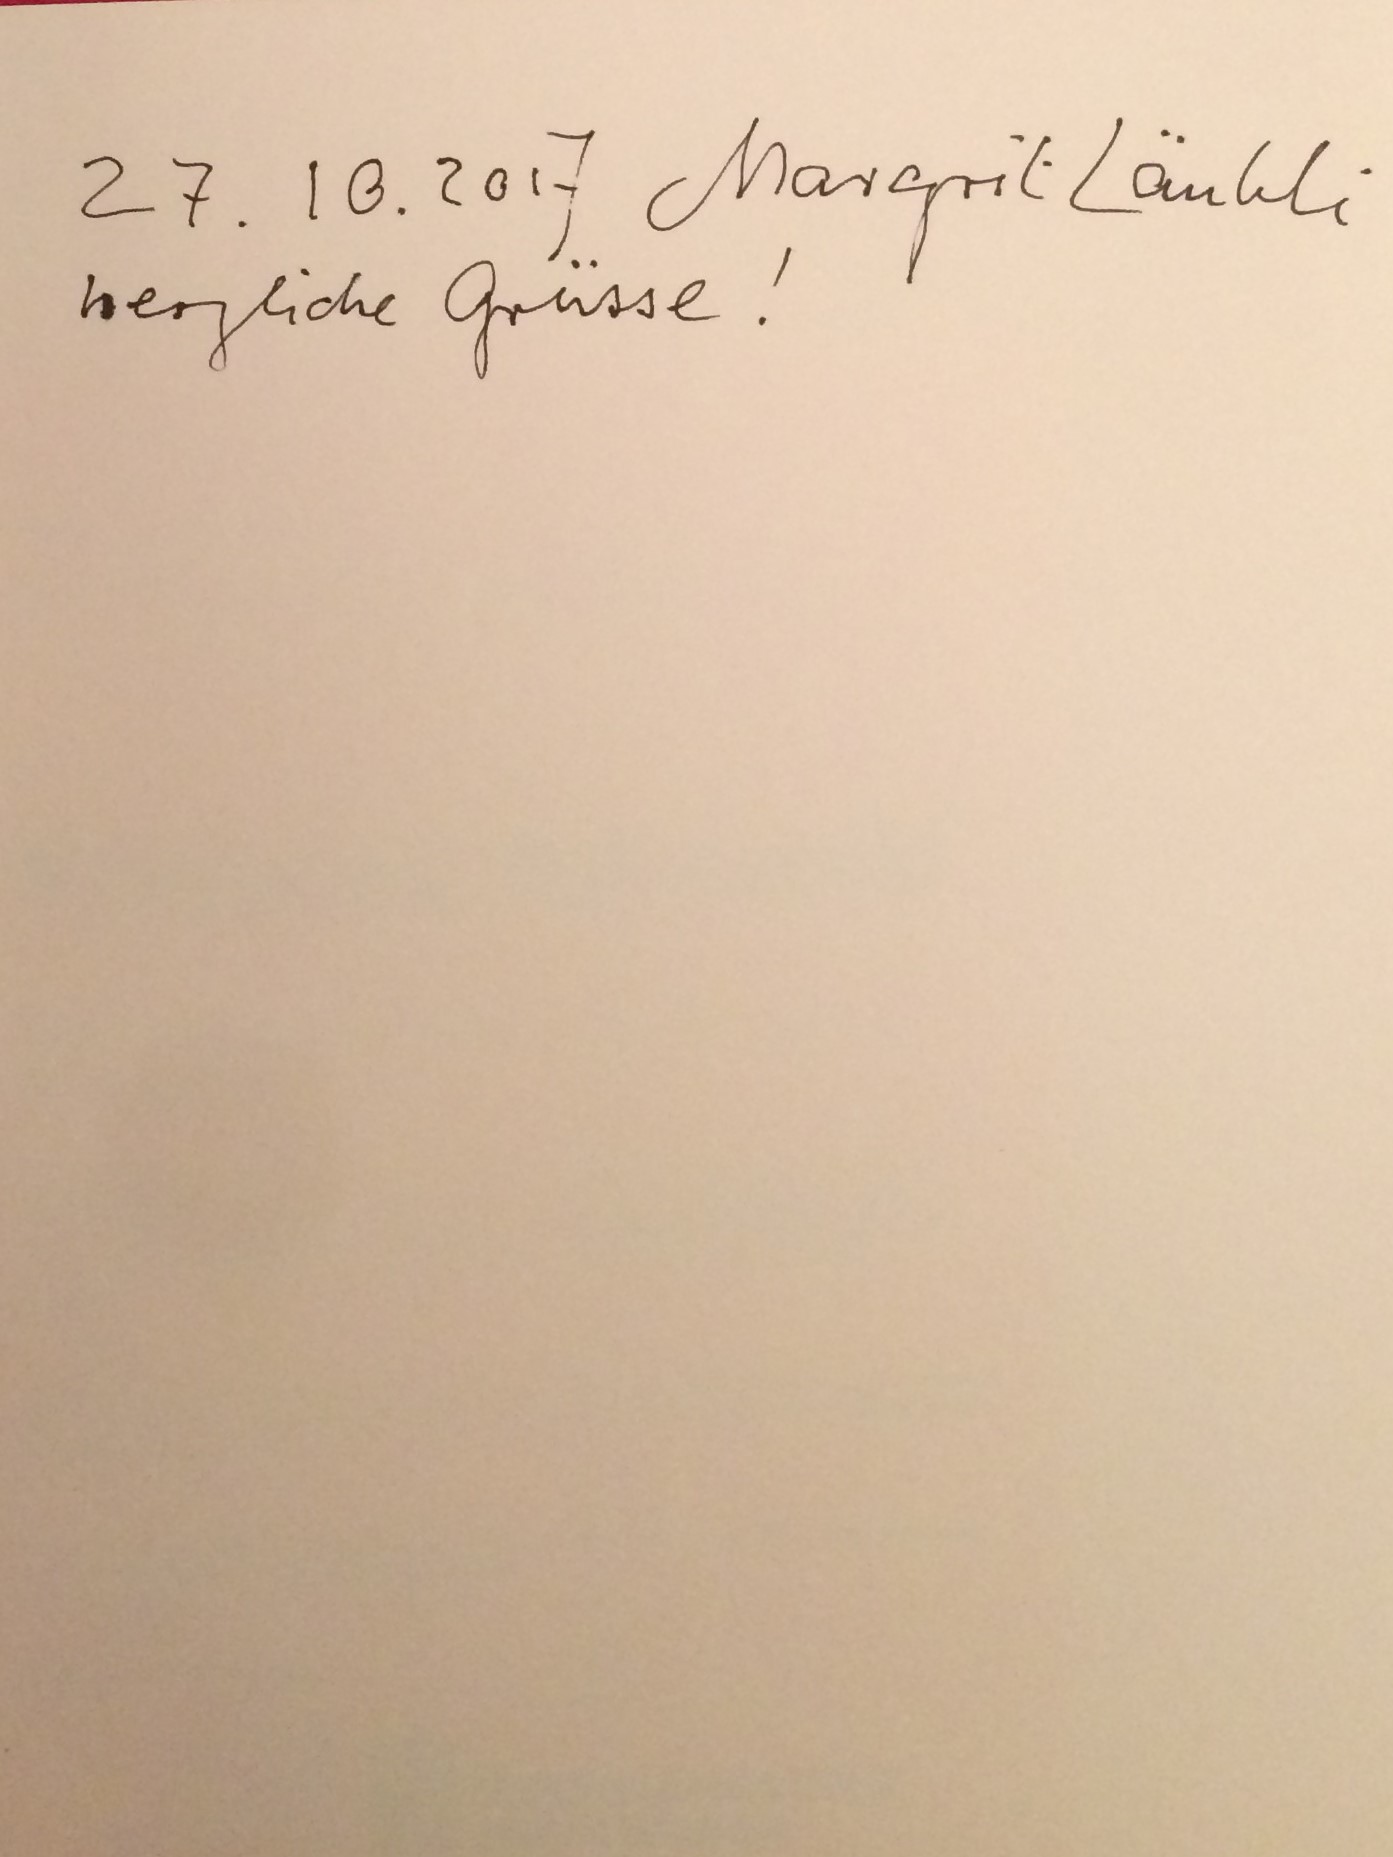 27. 10. 2017 Margrit Läubli
herzliche Grüsse!